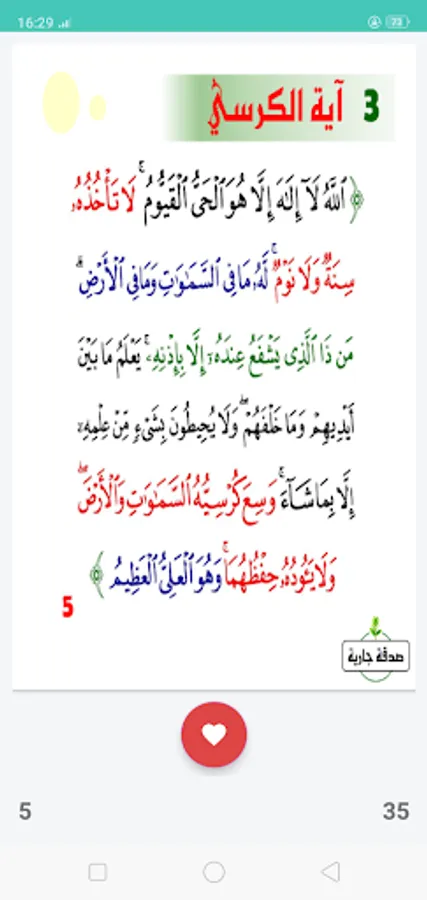 16:29
73
3 آية الكرسي
﴿ ٱللَّهُ لَآ إِلَٰهَ إِلَّا هُوَ ٱلْحَىُّ ٱلْقَيُّومُ ۚ لَا تَأْخُذُهُۥ
سِنَةٌ وَلَا نَوْمٌ ۚ لَّهُۥ مَا فِى ٱلسَّمَٰوَٰتِ وَمَا فِى ٱلْأَرْضِ ۗ
مَن ذَا ٱلَّذِى يَشْفَعُ عِندَهُۥٓ إِلَّا بِإِذْنِهِۦ ۚ يَعْلَمُ مَا بَيْنَ
أَيْدِيهِمْ وَمَا خَلْفَهُمْ ۖ وَلَا يُحِيطُونَ بِشَىْءٍ مِّنْ عِلْمِهِۦٓ
إِلَّا بِمَا شَآءَ ۚ وَسِعَ كُرْسِيُّهُ ٱلسَّمَٰوَٰتِ وَٱلْأَرْضَ ۖ
وَلَا يَـُٔودُهُۥ حِفْظُهُمَا ۚ وَهُوَ ٱلْعَلِىُّ ٱلْعَظِيمُ ﴾
5
صدقة جارية
5
35